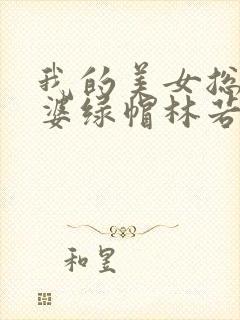 我的美女总
婆绿帽林若
和昱